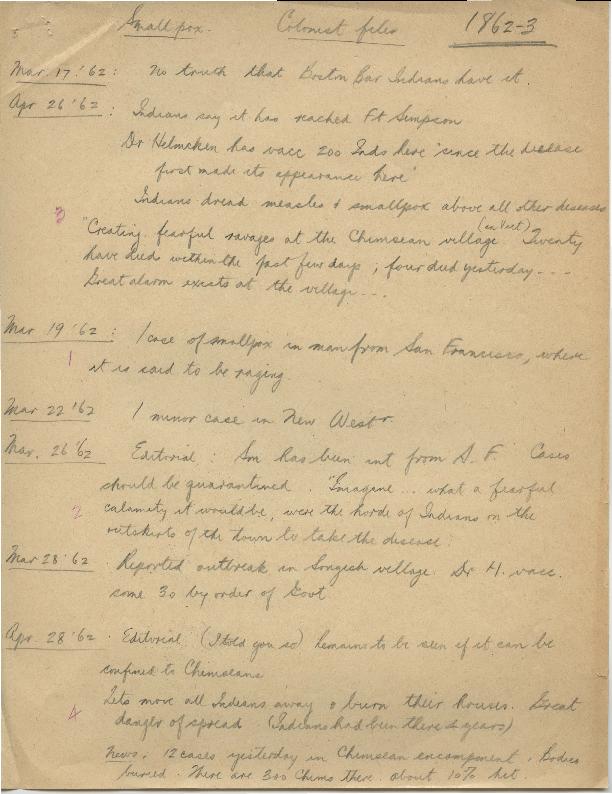 Smallpox. Colonist files 1862-3
Mar. 17. '62: no truth that Boston Bar Indians have it.
Apr 26 '62: Indians say it has reached Ft Simpson
Dr Helmcken has vacc 200 Inds here 'since the disease
first made its appearance here'
Indians dread measles & smallpox above all other diseases
3 "Creating fearful ravages at the Chimsean village (on Vict) Twenty
have died within the past few days; four died yesterday - - -
Great alarm exists at the village - - .
Mar 19 '62: 1 case of smallpox in man from San Francisco, where
1 it is said to be raging.
Mar 22 '62 1 minor case in New Westr.
Mar. 26 '62 Editorial: Sm has been int from S.F. Cases
should be quarantined. "Imagine ... what a fearful
2 calamity it would be, were the horde of Indians on the
outskirts of the town to take the disease.
Mar 28 '62 Reported outbreak in Songech village. Dr H. vacc.
some 30 by order of Govt
Apr. 28 '62. Editorial (I told you so) remains to be seen if it can be
confined to Chimseans
Lets move all Indians away & burn their houses. Great
4 danger of spread. (Indians had been there 4 years)
News. 12 cases yesterday in Chimsean encampment. Bodies
buried. There are 300 Chims there. about 10% hit.